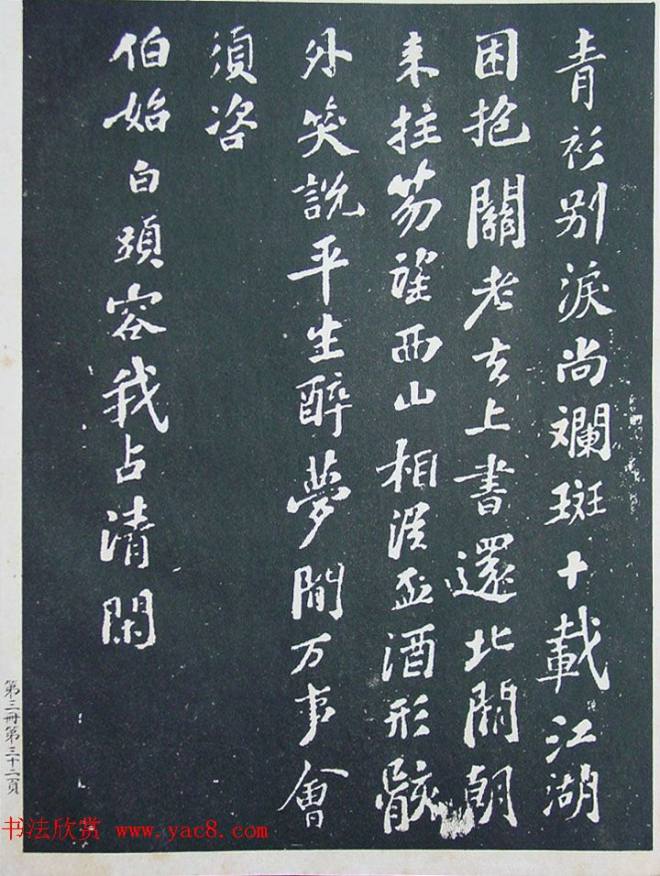 青衫别淚尚斕斑十載江湖
困抱關老去上書還北闕朝
来拄笏望西山相從盃酒形骸
外笑說平生醉夢間万事會
須咨
伯始白頭容我占清閑
第三冊第三十二頁
书法欣赏 www.yac8.com